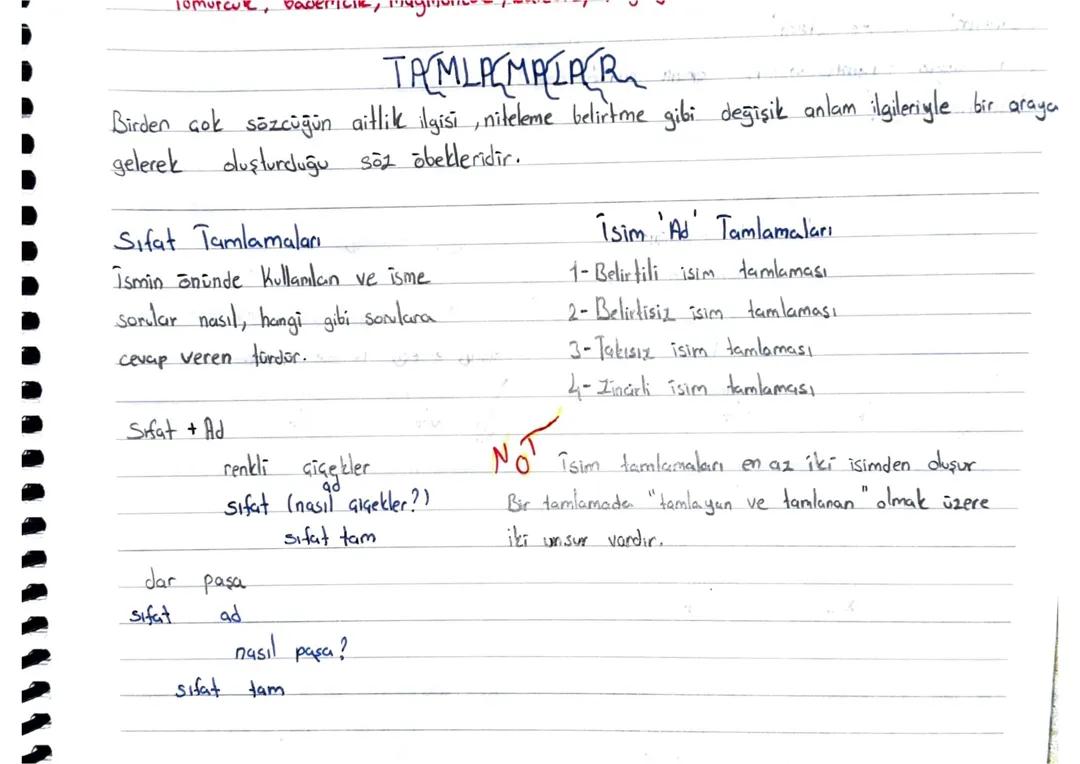 Tomurcuk,
TAMLAMALAR
Birden çok sözcüğün aitlik ilgisi, niteleme belirtme gibi değişik anlam ilgileriyle bir araya
gelerek oluşturduğu söz öbekleridir.
Sıfat Tamlamaları
İsmin önünde kullanılan ve isme
sorular nasıl, hangi gibi sorulara
cevap veren türdür.
Sıfat + Ad
renkli çiçekler
ad
sıfat (nasıl çiçekler?)
sıfat tam
dar paşa
sıfat ad
nasıl paşa?
sıfat tam
İsim 'Ad' Tamlamaları
1- Belirtili isim tamlaması
2- Belirtisiz isim tamlaması
3- Takısız isim tamlaması
4- Zincirli isim tamlaması
NOT
İsim tamlamaları en az iki isimden oluşur
Bir tamlamada "tamlayan ve tamlanan" olmak üzere
iki unsur vardır.